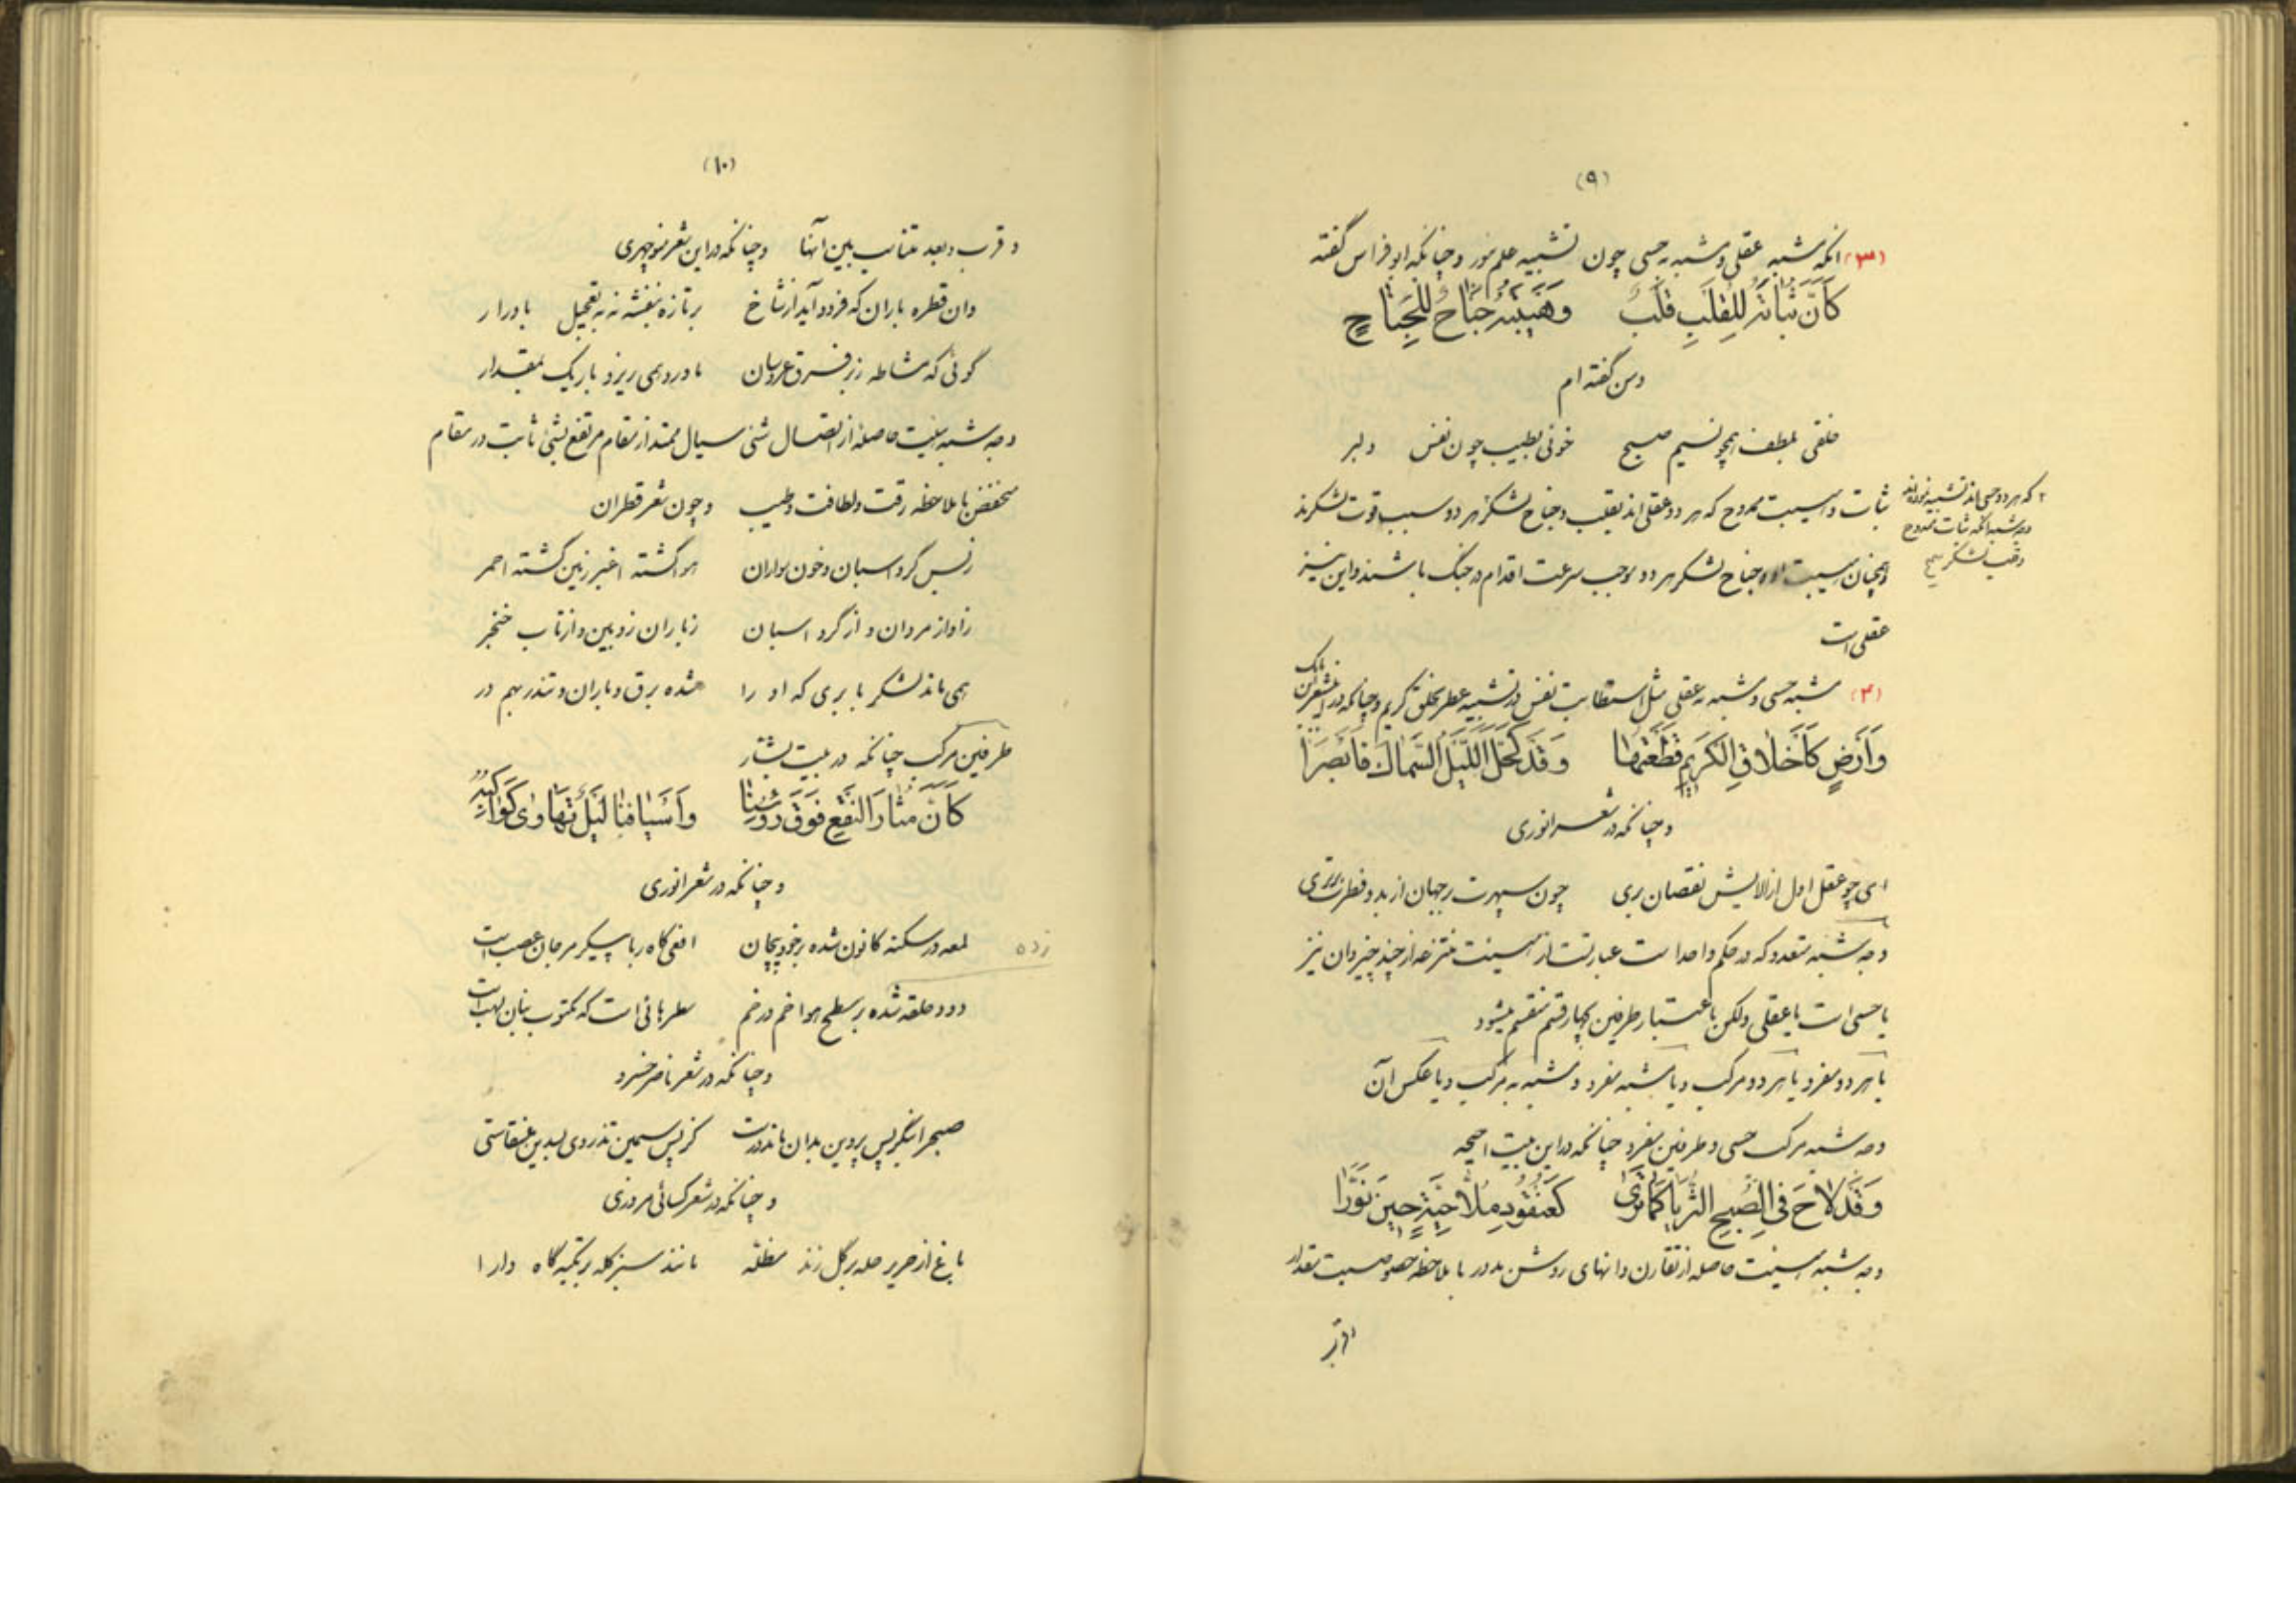 (۹)
(۳) آنکه مشبه عقلی و مشبه به حسی چون تشبیه علم بنور و چنانکه ابوفراس گفته
کَأَنَّ ثَبَاتَهُ لِلْقَلْبِ قَلْبٌ وَهَیْبَتَهُ جَنَاحٌ لِلْجَنَاحِ
و من گفته ام
خلقی بلطف همچو نسیم صبح خوئی بطیب چون نفس دلبر
ثبات و هیبت ممدوح که هر دو عقلی اند بقلب و جناح لشکر هر دو سبب قوت لشکرند
۲ که هر دو حسی اند تشبیه نموده اند
وجه شبه آنکه ثبات ممدوح
و قلب لشکر صح
و همچنان هیبت او و جناح لشکر هر دو موجب سرعت اقدام در جنگ باشند و این نیز
عقلی است
(۴) مشبه حسی و مشبه به عقلی مثل استطابت نفس در تشبیه عطر بخلق کریم و چنانکه در این شعر ابن بابک
وَأَرْضٍ کَأَخْلَاقِ الْکَرِیمِ قَطَعْتُهَا وَقَدْ کَحَلَ اللَّیْلُ السِّمَاكَ فَأَبْصَرَا
و چنانکه در شعر انوری
ای چو عقل اول از آلایش نقصان بری چون سپهرت بر جهان از بدو فطرت برتری
وجه شبه متعدد که در حکم واحد است عبارتست از هیئت منتزعه از چند چیز و آن نیز
یا حسی است یا عقلی ولکن باعتبار طرفین بچهار قسم منقسم میشود
یا هر دو مفرد یا هر دو مرکب و یا مشبه مفرد و مشبه به مرکب و یا عکس آن
وجه شبه مرکب حسی و طرفین مفرد چنانکه در این بیت احیحه
وَقَدْ لَاحَ فِی الصُّبْحِ الثُّرَیَّا کَمَا تَرَى کَعُنْقُودِ مُلَّاحِیَّةٍ حِینَ نَوَّرَا
وجه شبه هیئت حاصله از تقارن دانهای روشن مدور با ملاحظه خصوصیت مقدار
و قرب
(۱۰)
و قرب و بعد متناسب بین آنها و چنانکه در این شعر منوچهری
وان قطره باران که فرود آید از شاخ بر تازه بنفشه نه بتعجیل بادرار
گوئی که مشاطه زبر فرق عروسان ماورد همی ریزد باریک بمقدار
وجه شبه هیئت حاصله از اتصال شئی سیال ممتد از مقام مرتفع بشئی ثابت در مقام
منخفض با ملاحظه رقت و لطافت و طیب و چون شعر قطران
ز بس گرد اسبان و خون سواران هوا گشته اغبر زمین گشته احمر
ز آواز مردان و از گرد اسبان ز باران زوبین و از تاب خنجر
همی ماند لشکر بابری که او را شده برق و باران و تندر بهم در
طرفین مرکب چنانکه در بیت بشار
کَأَنَّ مُثَارَ النَّقْعِ فَوْقَ رُؤُسِنَا وَأَسْیَافَنَا لَیْلٌ تَهَاوَى کَوَاکِبُهُ
و چنانکه در شعر انوری
لمعه در سکنه کانون شده بر خود پیچان افعی کاه ربا پیکر مرجان عصب است
زده
دود حلقه شده بر سطح هوا خم در خم سطرهائی است که مکتوب بنان لهب است
و چنانکه در شعر ناصر خسرو
صبح را بنگر پس پروین بدان ماند درست کز پس سیمین تذروی بسدین عنقاستی
و چنانکه در شعر کسائی مروزی
باغ از حریر حله بر گل زند مظله مانند سبز کله بر تکیه گاه دارا